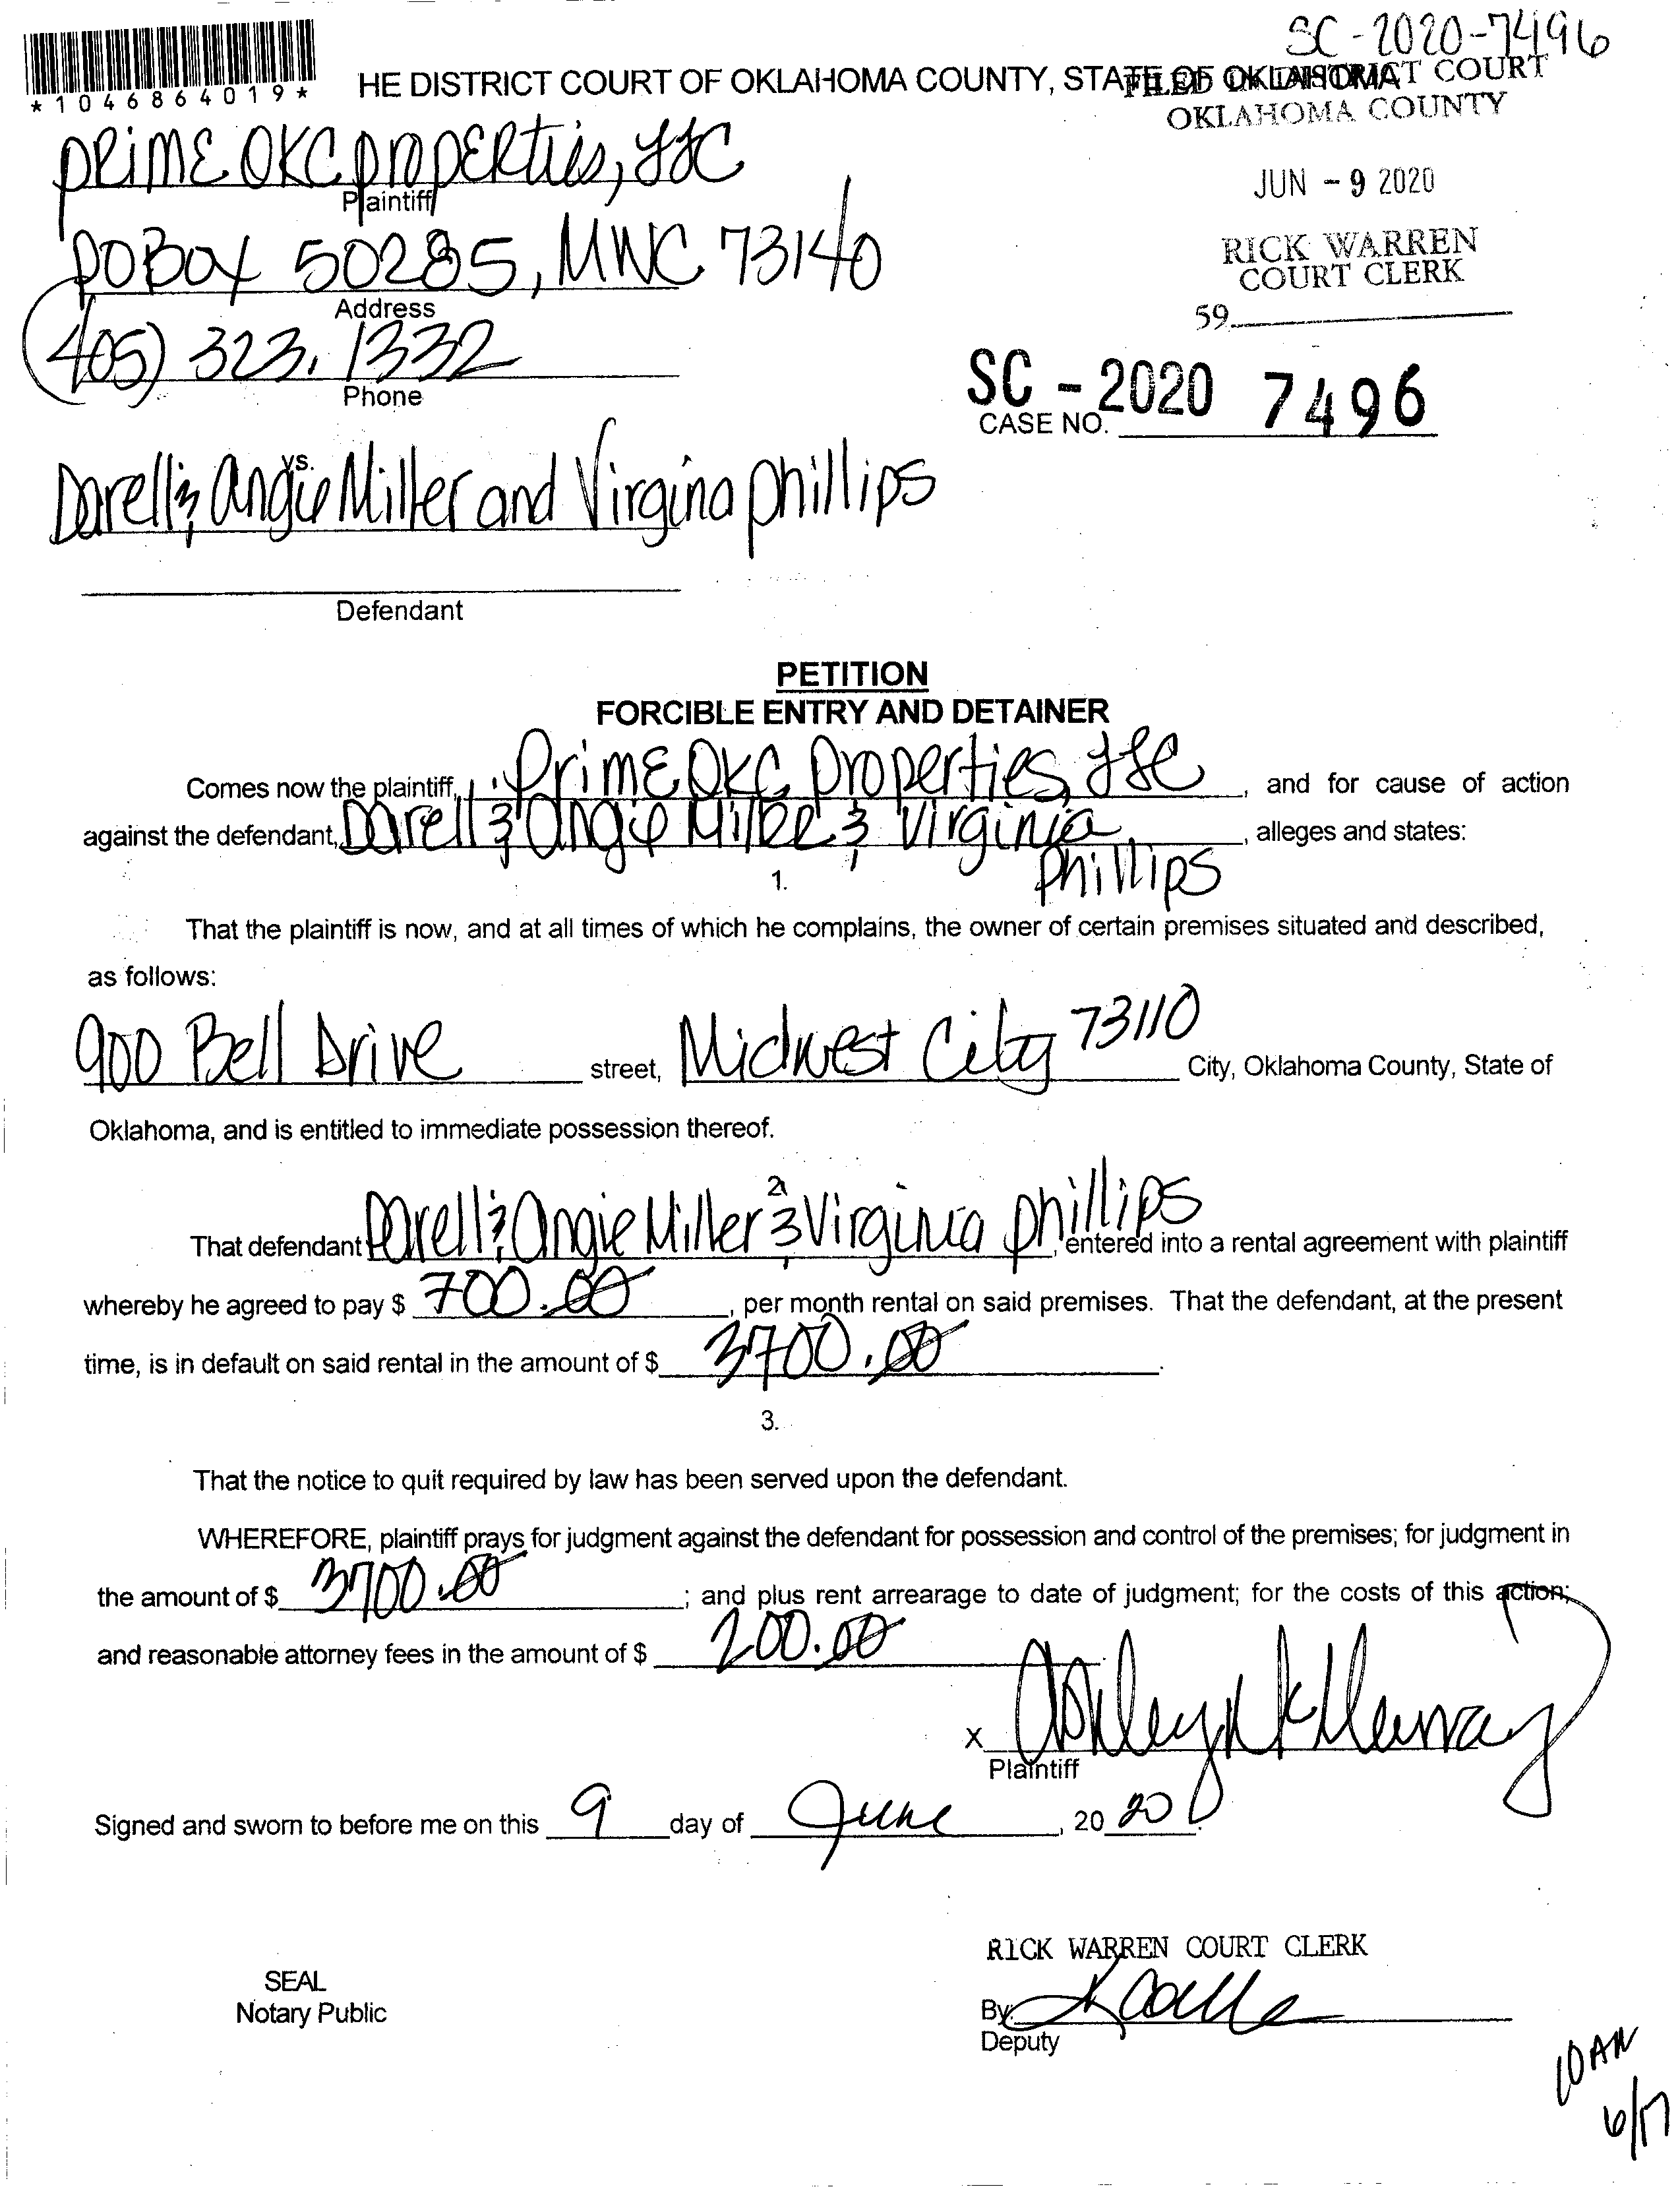 SC-2020-7496
*1046864019*
HE DISTRICT COURT OF OKLAHOMA COUNTY, STATE OF OKLAHOMA
FILED IN DISTRICT COURT
OKLAHOMA COUNTY
PRIME OKC PROPERTIES, LLC
Plaintiff
JUN - 9 2020
PO BOX 50285, MWC 73140
Address
RICK WARREN
COURT CLERK
59
(405) 323.1332
Phone
SC - 2020 7496
CASE NO.
vs.
Darell & Angie Miller and Virgina phillips
Defendant
PETITION
FORCIBLE ENTRY AND DETAINER
Comes now the plaintiff, Prime OKC Properties, LLC, and for cause of action
against the defendant, Darell & Angie Miller & Virginia Phillips, alleges and states:
1.
That the plaintiff is now, and at all times of which he complains, the owner of certain premises situated and described,
as follows:
900 Bell Drive street, Midwest City 73110 City, Oklahoma County, State of
Oklahoma, and is entitled to immediate possession thereof.
2.
That defendant Darell & Angie Miller & Virginia phillips, entered into a rental agreement with plaintiff
whereby he agreed to pay $ 700.00, per month rental on said premises. That the defendant, at the present
time, is in default on said rental in the amount of $ 3700.00.
3.
That the notice to quit required by law has been served upon the defendant.
WHEREFORE, plaintiff prays for judgment against the defendant for possession and control of the premises; for judgment in
the amount of $ 3700.00; and plus rent arrearage to date of judgment; for the costs of this action;
and reasonable attorney fees in the amount of $ 200.00
X
Plaintiff
Signed and sworn to before me on this 9 day of June, 2020.
RICK WARREN COURT CLERK
SEAL
Notary Public
By:
Deputy
10AM
6/17